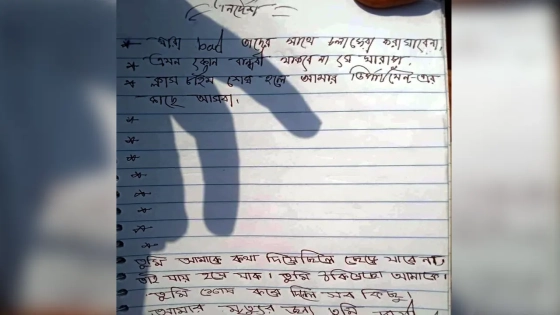 নির্দেশ
* যারা bad তাদের সাথে চলাফেরা করা যাবেনা,
* এমন কোন বান্ধবী থাকবে না যে খারাপ।
* ক্লাস টাইম শেষ হলে আমার ডিপার্টমেন্ট-এর
কাছে আসবা।
*
*
*
*
*
*
*
তুমি আমাকে কথা দিয়েছিলে ছেড়ে যাবে না,
যাই হয়ে যাক। তুমি ঠকিয়েছো আমাকে।
তুমি শেষ করে দিলে সব কিছু
আমার মৃত্যুর জন্য তুমি দায়ী